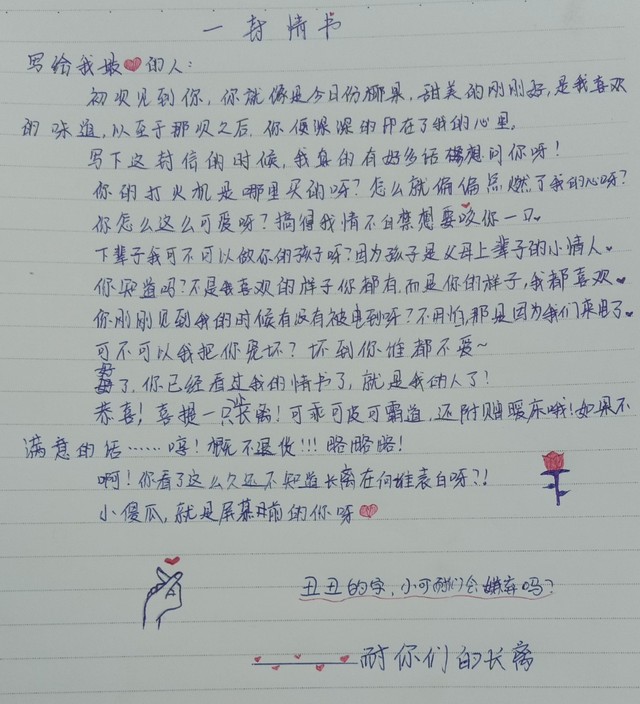 一封情书
写给我最❤的人：
初次见到你，你就像是今日份椰果，甜美的刚刚好，是我喜欢
的味道，以至于那次之后，你便深深的印在了我的心里。
写下这封信的时候，我真的有好多话想问你呀！
你的打火机是哪里买的呀？怎么就偏偏点燃了我的心呀？
你怎么这么可爱呀？搞得我情不自禁想要咬你一口❤
下辈子我可不可以做你的孩子呀？因为孩子是父母上辈子的小情人❤
你知道吗？不是我喜欢的样子你都有，而是你的样子，我都喜欢❤
你刚刚见到我的时候有没有被电到呀？不用怕，那是因为我们来电了❤
可不可以我把你宠坏？坏到你谁都不爱~
好了，你已经看过我的情书了，就是我的人了！
恭喜！喜提一只长离！可乖可皮可霸道，还附赠暖床哦！如果不
满意的话……哼！概不退货！！！略略略！
啊！你看了这么久还不知道长离在向谁表白呀？！
小傻瓜，就是屏幕前的你呀❤
丑丑的字，小可耐们会嫌弃吗？
耐你们的长离